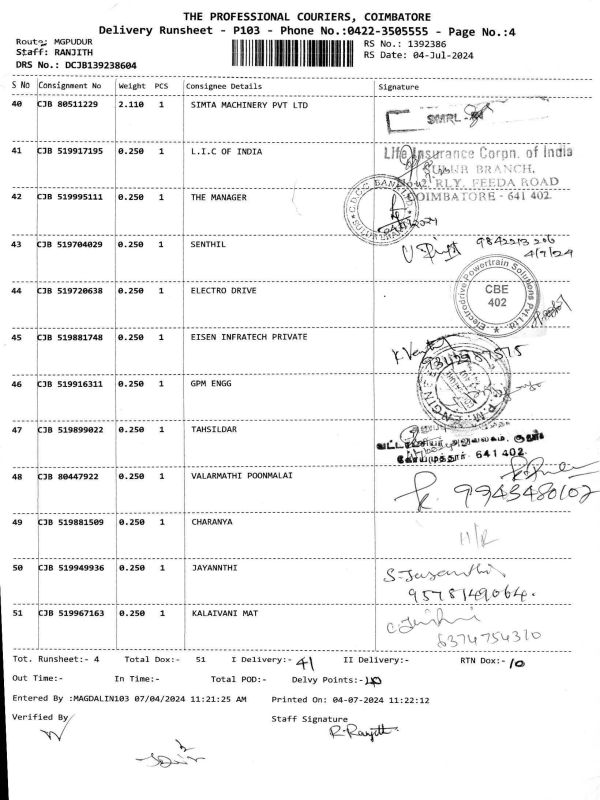 THE PROFESSIONAL COURIERS, COIMBATORE
Delivery Runsheet - P103 - Phone No.:0422-3505555 - Page No.:4
Route: MGPUDUR
RS No.: 1392386
Staff: RANJITH
RS Date: 04-Jul-2024
DRS No.: DCJB139238604
S No Consignment No Weight PCS Consignee Details Signature
40 CJB 80511229 2.110 1 SIMTA MACHINERY PVT LTD
SMRL
41 CJB 519917195 0.250 1 L.I.C OF INDIA
Life Insurance Corpn. of India
BRANCH,
RLY. FEEDA ROAD
42 CJB 519995111 0.250 1 THE MANAGER
COIMBATORE - 641 402.
43 CJB 519704029 0.250 1 SENTHIL
9842213206
4/7/24
44 CJB 519720638 0.250 1 ELECTRO DRIVE
Electrodrive Powertrain Solutions Pvt Ltd.
CBE
402
45 CJB 519881748 0.250 1 EISEN INFRATECH PRIVATE
9342987575
46 CJB 519916311 0.250 1 GPM ENGG
47 CJB 519899022 0.250 1 TAHSILDAR
கோயமுத்தூர் 641 402.
48 CJB 80447922 0.250 1 VALARMATHI POONMALAI
9943480102
49 CJB 519881509 0.250 1 CHARANYA
H/R
50 CJB 519949936 0.250 1 JAYANNTHI
S. Jayanthi
9578149064.
51 CJB 519967163 0.250 1 KALAIVANI MAT
6374754310
Tot. Runsheet:- 4 Total Dox:- 51 I Delivery:- 41 II Delivery:- RTN Dox:- 10
Out Time:- In Time:- Total POD:- Delvy Points:- 40
Entered By :MAGDALIN103 07/04/2024 11:21:25 AM Printed On: 04-07-2024 11:22:12
Verified By Staff Signature
R. Ranjith